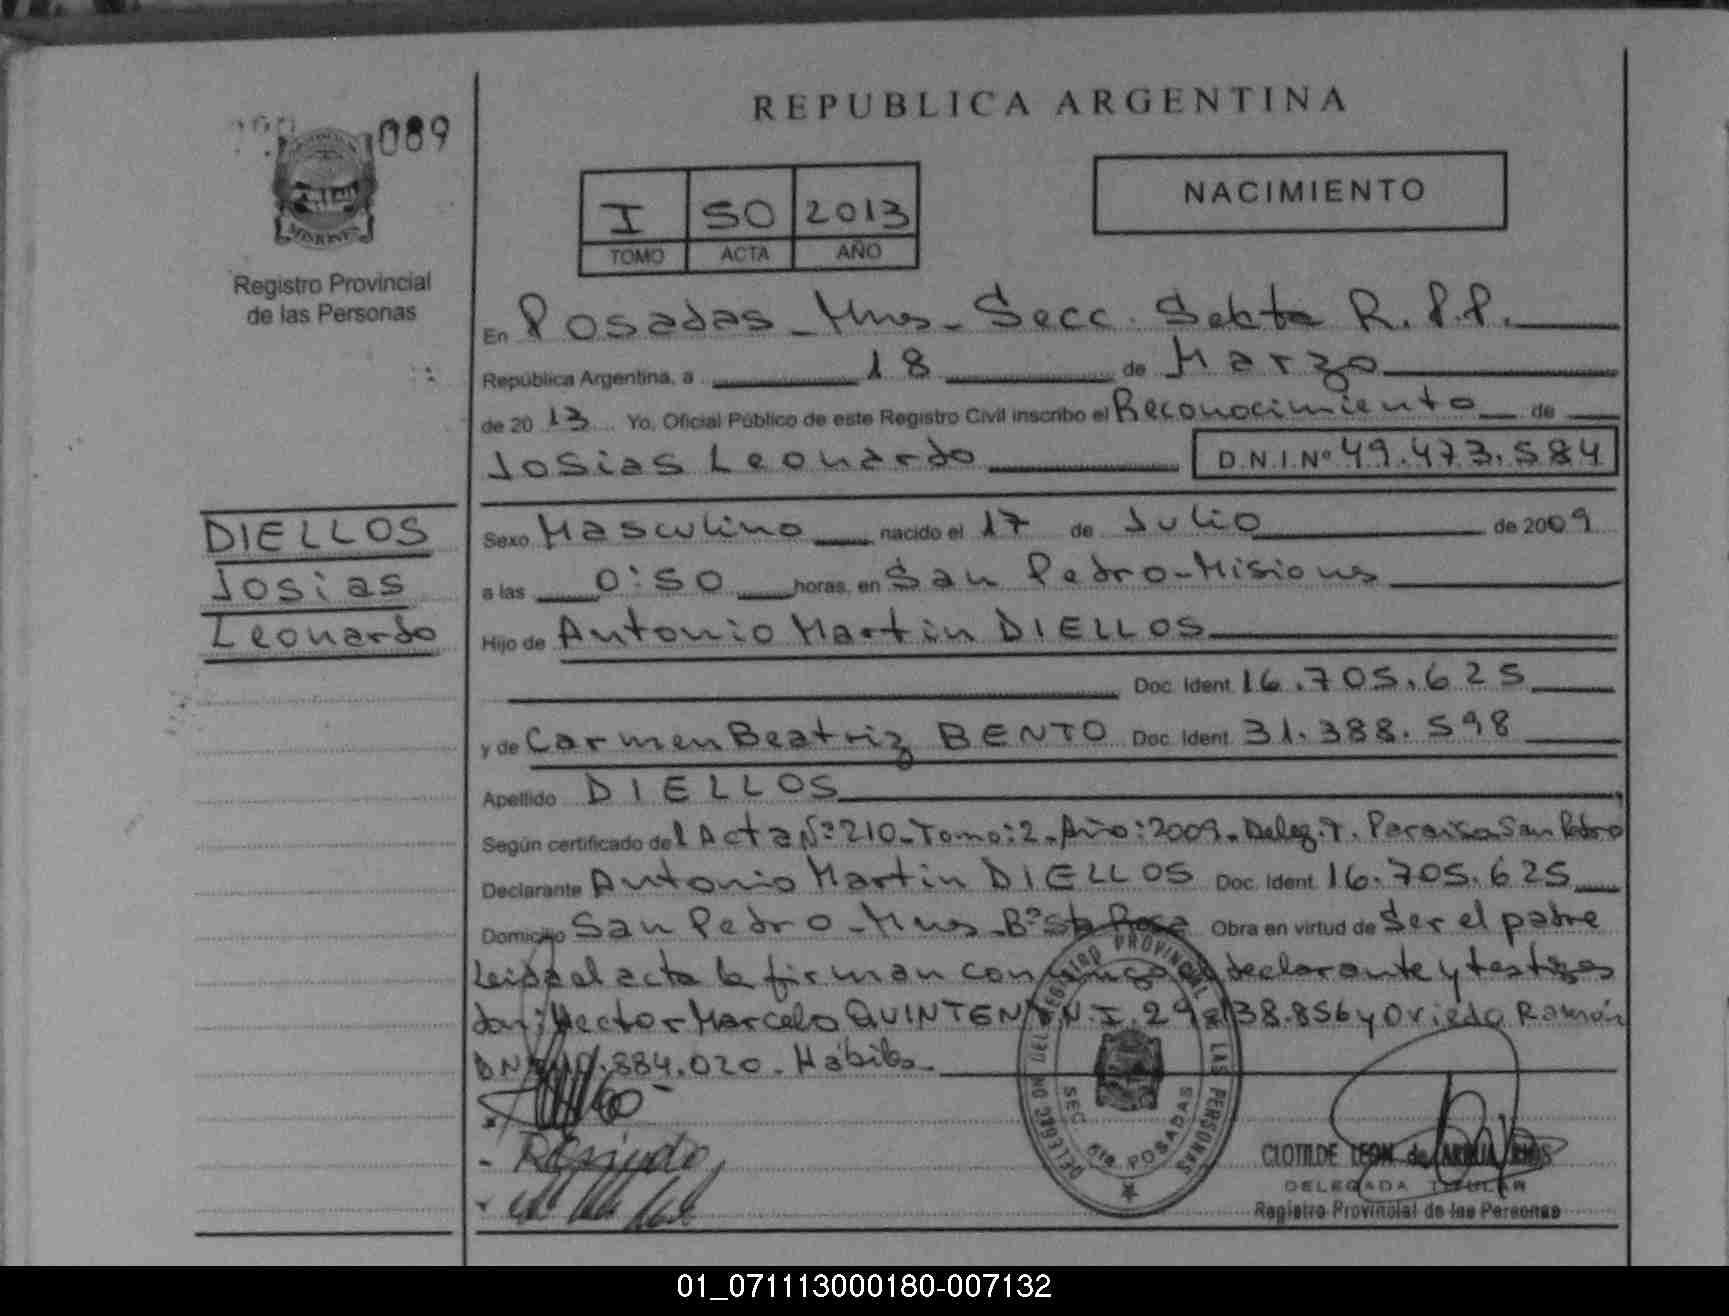 089
MISIONES
Registro Provincial
de las Personas
REPUBLICA ARGENTINA
I 50 2013
TOMO ACTA AÑO
NACIMIENTO
En Posadas - Mnes - Secc. Sexta R.P.P.
República Argentina, a 18 de Marzo
de 2013 Yo, Oficial Público de este Registro Civil inscribo el Reconocimiento de
Josias Leonardo D.N.I. Nº 49.473.584
DIELLOS
Josias
Leonardo
Sexo Masculino nacido el 17 de Julio de 2009
a las 0:50 horas, en San Pedro - Misiones
Hijo de Antonio Martin DIELLOS
Doc. Ident. 16.705.625
y de Carmen Beatriz BENTO Doc. Ident. 31.388.598
Apellido DIELLOS
Según certificado del Acta Nº 210 - Tomo: 2 - Año: 2009 - Deleg. T. Paraiso San Pedro
Declarante Antonio Martin DIELLOS Doc. Ident. 16.705.625
Domicilio San Pedro - Mnes - Bº Sta Rosa Obra en virtud de Ser el padre
Leida el acta la firman conmigo el declarante y testigos
don: Hector Marcelo QUINTEN D.N.I. 29.138.856 y Oviedo Ramón
DN .884.020 - Hábiles
DELEGACION DEL REGISTRO PROVINCIAL DE LAS PERSONAS
SEC 6ta POSADAS
CLOTILDE LEON de
DELEGADA TITULAR
Registro Provincial de las Personas
01_071113000180-007132